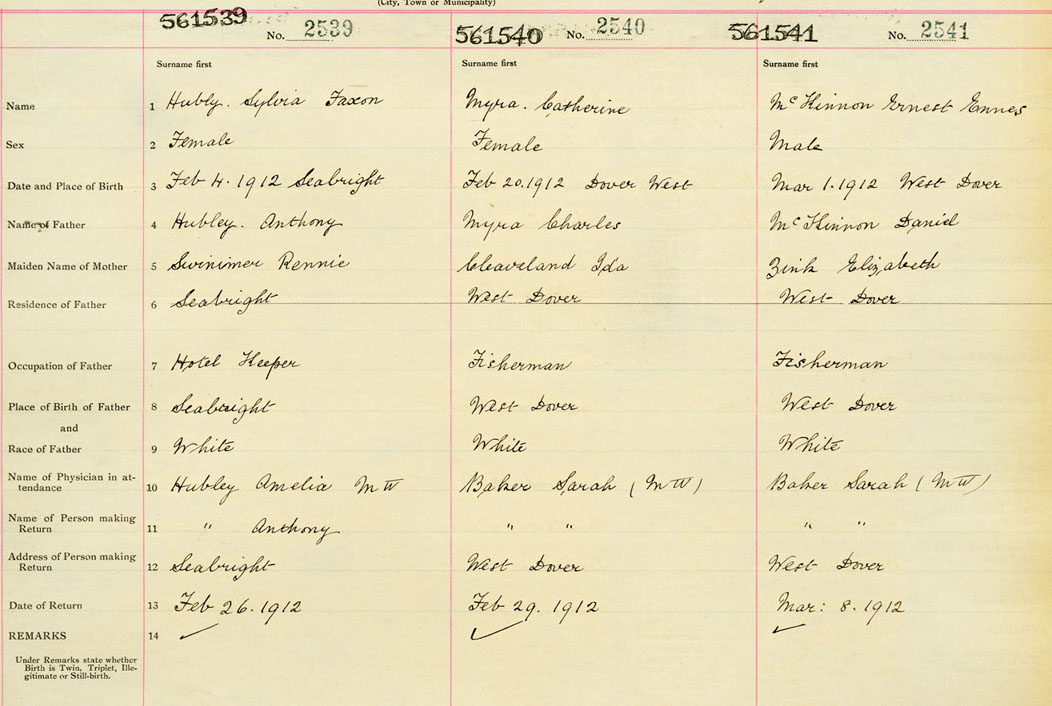 (City, Town or Municipality)
561539 No. 2539 561540 No. 2540 561541 No. 2541
Surname first Surname first Surname first
Name 1 Hubly. Sylvia Faxon Myra. Catherine McKinnon Ernest Ennes
Sex 2 Female Female Male
Date and Place of Birth 3 Feb 4. 1912 Seabright Feb 20. 1912 Dover West Mar 1. 1912 West Dover
Name of Father 4 Hubley. Anthony Myra Charles McKinnon Daniel
Maiden Name of Mother 5 Swinimer Rennie Cleaveland Ida Zink Elizabeth
Residence of Father 6 Seabright West Dover West Dover
Occupation of Father 7 Hotel Keeper Fisherman Fisherman
Place of Birth of Father 8 Seabright West Dover West Dover
and
Race of Father 9 White White White
Name of Physician in at-
tendance 10 Hubley Amelia MW Baker Sarah (MW) Baker Sarah (MW)
Name of Person making
Return 11 " Anthony " " " "
Address of Person making
Return 12 Seabright West Dover West Dover
Date of Return 13 Feb 26. 1912 Feb 29. 1912 Mar: 8. 1912
REMARKS 14
Under Remarks state whether
Birth is Twin, Triplet, Ille-
gitimate or Still-birth.